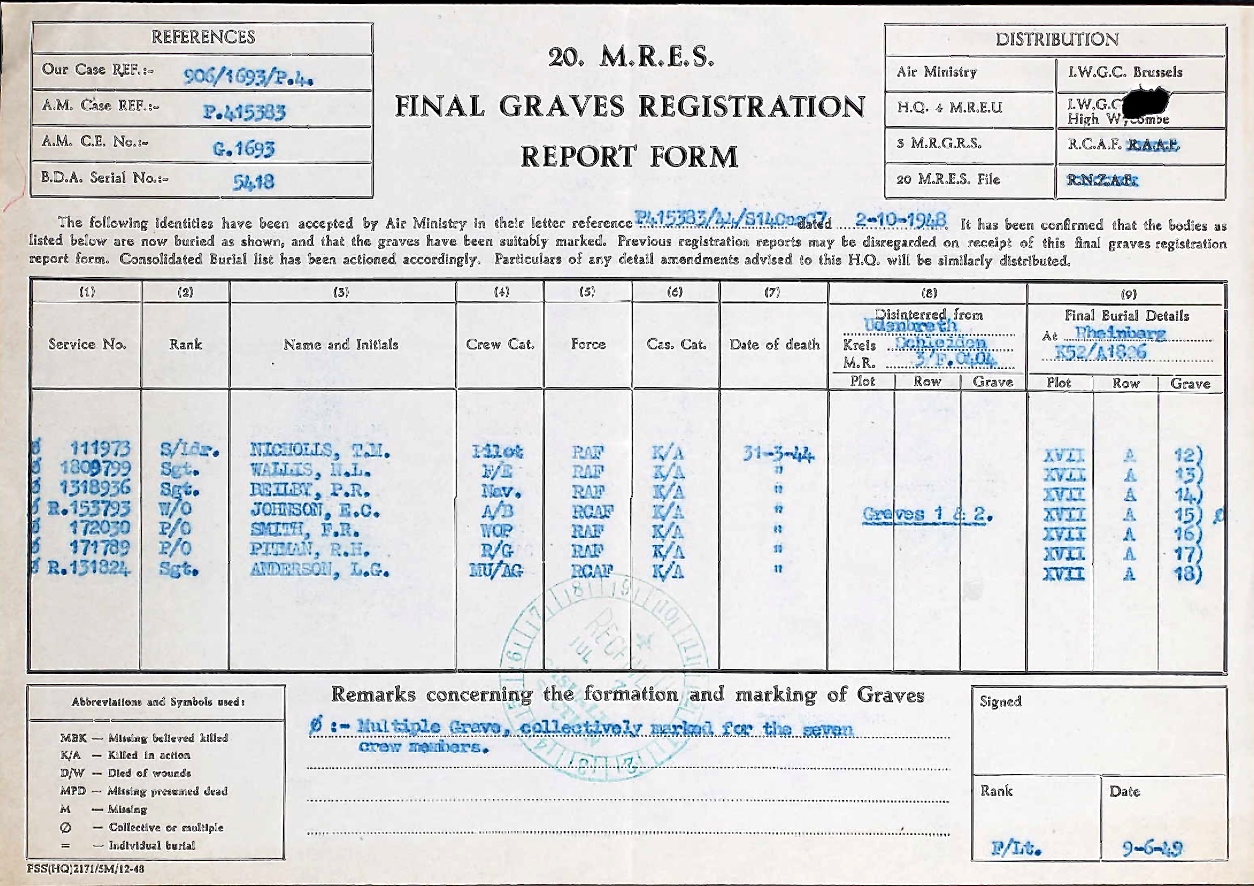 REFERENCES
Our Case REF.:- 906/1693/P.4.
A.M. Case REF.:- P.415383
A.M. C.E. No.:- G.1693
B.D.A. Serial No.:- 5418
20. M.R.E.S.
FINAL GRAVES REGISTRATION
REPORT FORM
DISTRIBUTION
Air Ministry I.W.G.C. Brussels
H.Q. 4 M.R.E.U I.W.G.C
High Wycombe
3 M.R.G.R.S. R.C.A.F. R.A.A.F.
20 M.R.E.S. File R.N.Z.A.F.
The following identities have been accepted by Air Ministry in their letter reference P415383/44/S14 dated 2-10-1948. It has been confirmed that the bodies as
listed below are now buried as shown, and that the graves have been suitably marked. Previous registration reports may be disregarded on receipt of this final graves registration
report form. Consolidated Burial list has been actioned accordingly. Particulars of any detail amendments advised to this H.Q. will be similarly distributed.
(1) (2) (3) (4) (5) (6) (7) (8) (9)
Service No. Rank Name and Initials Crew Cat. Force Cas. Cat. Date of death
Disinterred from Udenbreth
Kreis Schleiden
M.R. 3/F.0404
Plot Row Grave
Final Burial Details
At Rheinberg
K52/A1826
Plot Row Grave
Ø 111973 S/Ldr. NICHOLLS, T.M. Pilot RAF K/A 31-3-44 XVII A 12)
Ø 1809799 Sgt. WALLIS, N.L. F/E RAF K/A " XVII A 13)
Ø 1318936 Sgt. BEILBY, P.R. Nav. RAF K/A " XVII A 14)
Ø R.153793 W/O JOHNSON, E.C. A/B RCAF K/A " Graves 1 & 2. XVII A 15) Ø
Ø 172030 P/O SMITH, F.R. WOP RAF K/A " XVII A 16)
Ø 171789 P/O PITMAN, R.H. R/G RAF K/A " XVII A 17)
Ø R.131824 Sgt. ANDERSON, L.G. MU/AG RCAF K/A " XVII A 18)
Abbreviations and Symbols used:
MBK — Missing believed killed
K/A — Killed in action
D/W — Died of wounds
MPD — Missing presumed dead
M — Missing
Ø — Collective or multiple
= — Individual burial
FSS(HQ)2171/5M/12-48
Remarks concerning the formation and marking of Graves
Ø :- Multiple Grave, collectively marked for the seven
crew members.
Signed
Rank Date
F/Lt. 9-6-49